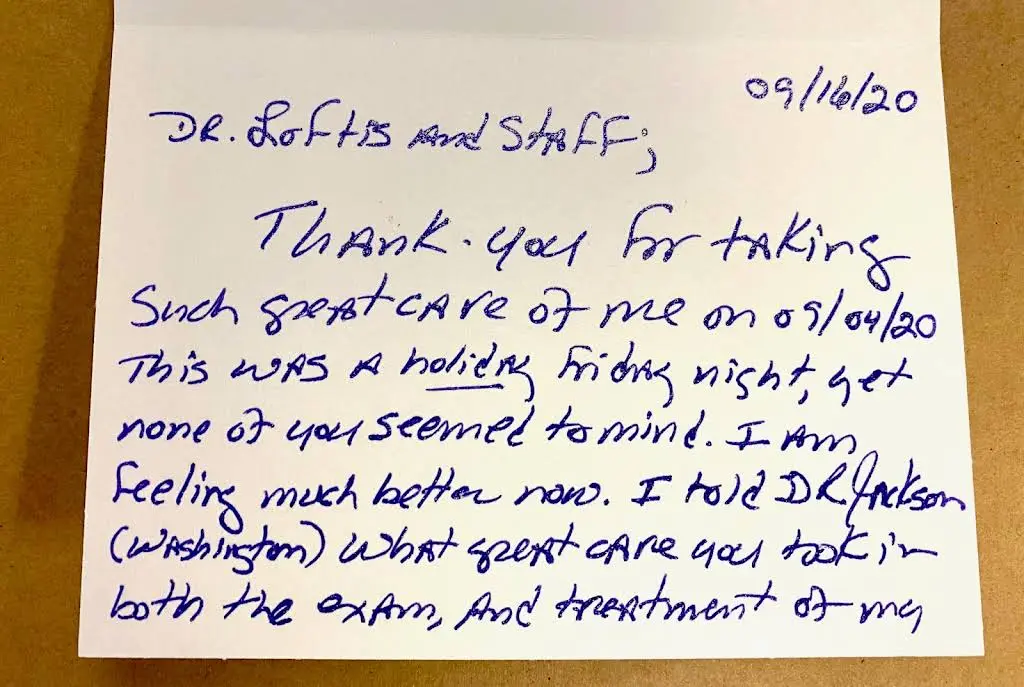 09/16/20
Dr. Loftis and Staff;
Thank-you for taking
Such great care of me on 09/04/20
This was a holiday Friday night, yet
none of you seemed to mind. I am
feeling much better now. I told DR Jackson
(Washington) what great care you took in
both the exam, and treatment of my